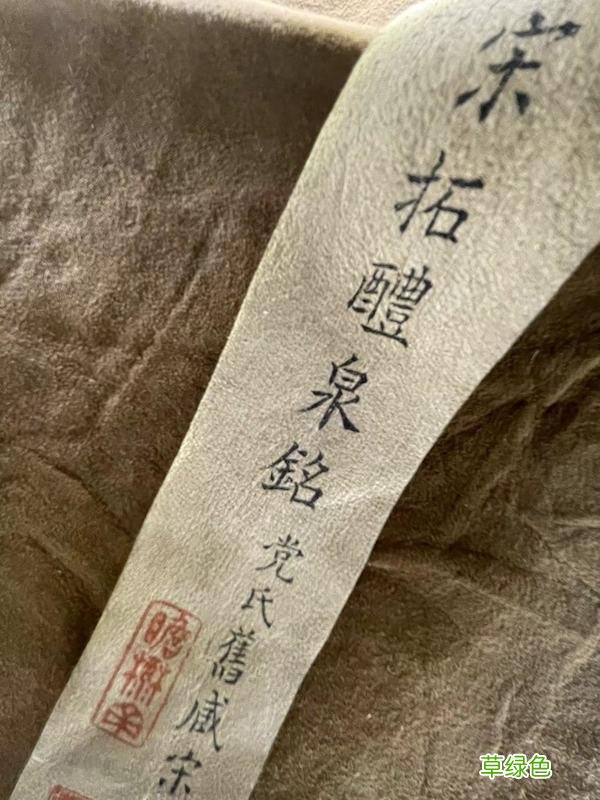 宋拓醴泉銘
党氏舊臧宋
草绿色